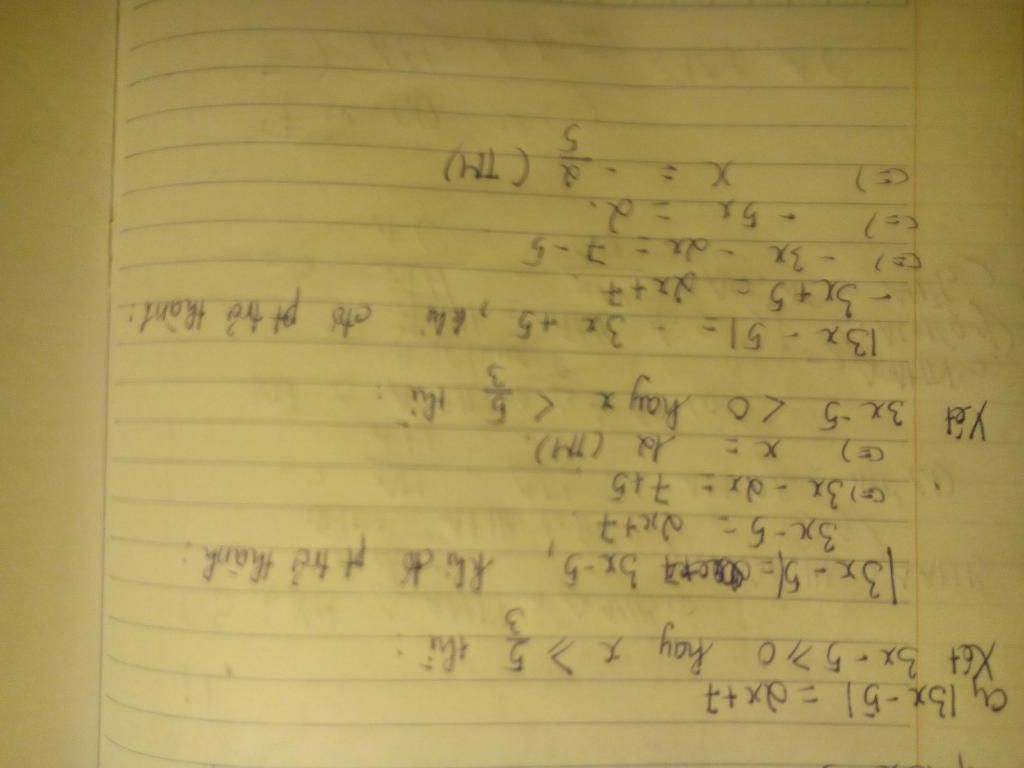 a, |3x - 5| = 2x + 7
Xét 3x - 5 ⩾ 0 hay x ⩾ 5/3 thì:
|3x - 5| = 3x - 5, khi đó pt trở thành:
3x - 5 = 2x + 7
(=) 3x - 2x = 7 + 5
(=) x = 12 (TM)
Xét 3x - 5 < 0 hay x < 5/3 thì:
|3x - 5| = - 3x + 5, khi đó pt trở thành:
- 3x + 5 = 2x + 7
(=) - 3x - 2x = 7 - 5
(=) - 5x = 2.
(=) x = - 2/5 (TM)